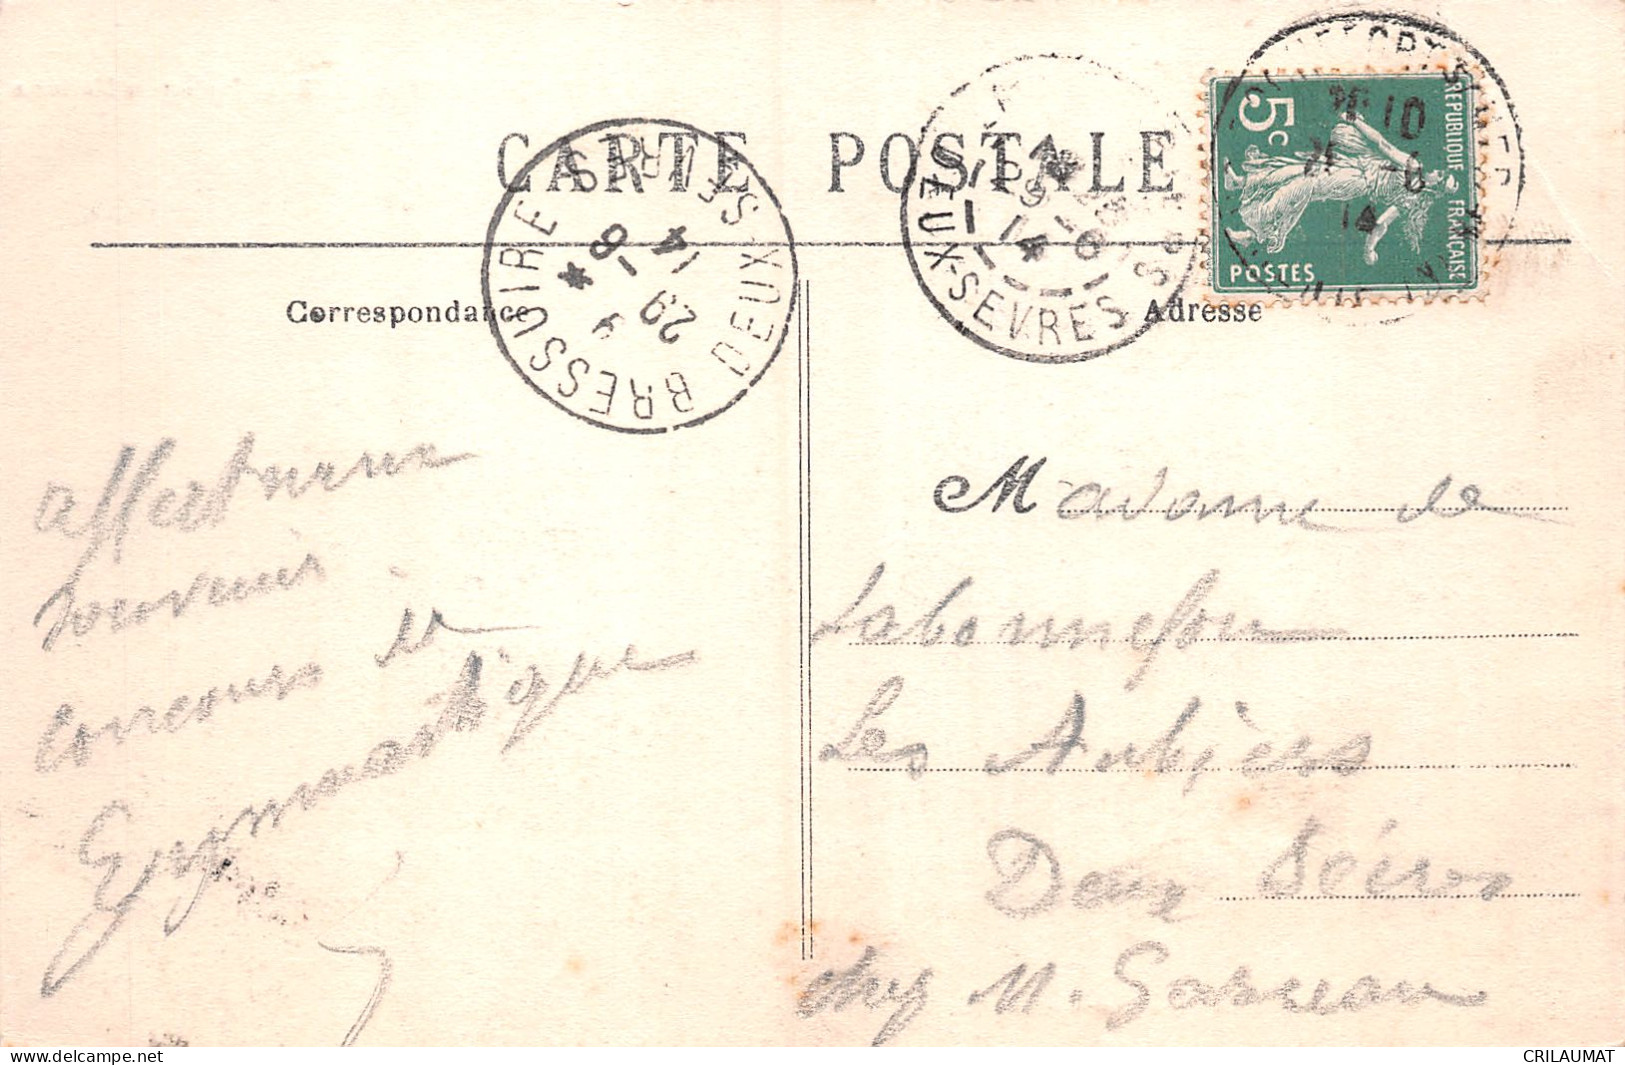 CARTE POSTALE
Correspondance
Adresse
REPUBLIQUE FRANÇAISE
5c
POSTES
BRESSUIRE DEUX-SEVRES
* 9 29 -6 14 *
DEUX-SEVRES
affectueux
souvenir
concours de
Gymnastique
Madame de
Labonnefon
Les Aubiers
Deux Sèvres
chez M. Garneau
CRILAUMAT